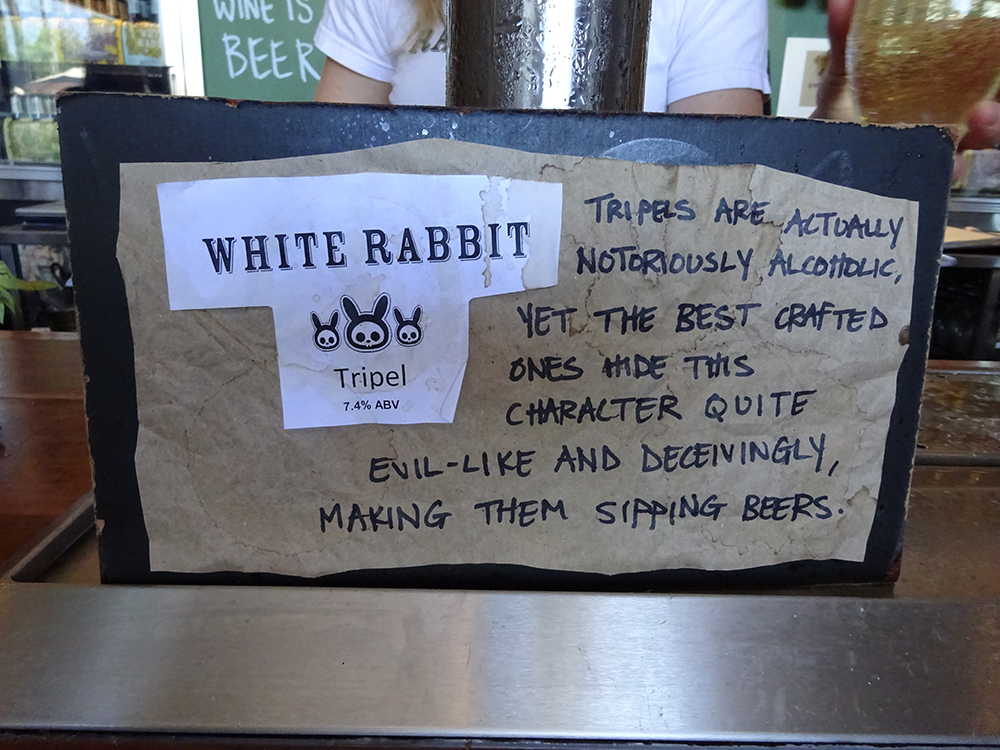 WINE IS
BEER
WHITE RABBIT
Tripel
7.4% ABV
TRIPELS ARE ACTUALLY
NOTORIOUSLY ALCOHOLIC,
YET THE BEST CRAFTED
ONES HIDE THIS
CHARACTER QUITE
EVIL-LIKE AND DECEIVINGLY,
MAKING THEM SIPPING BEERS.